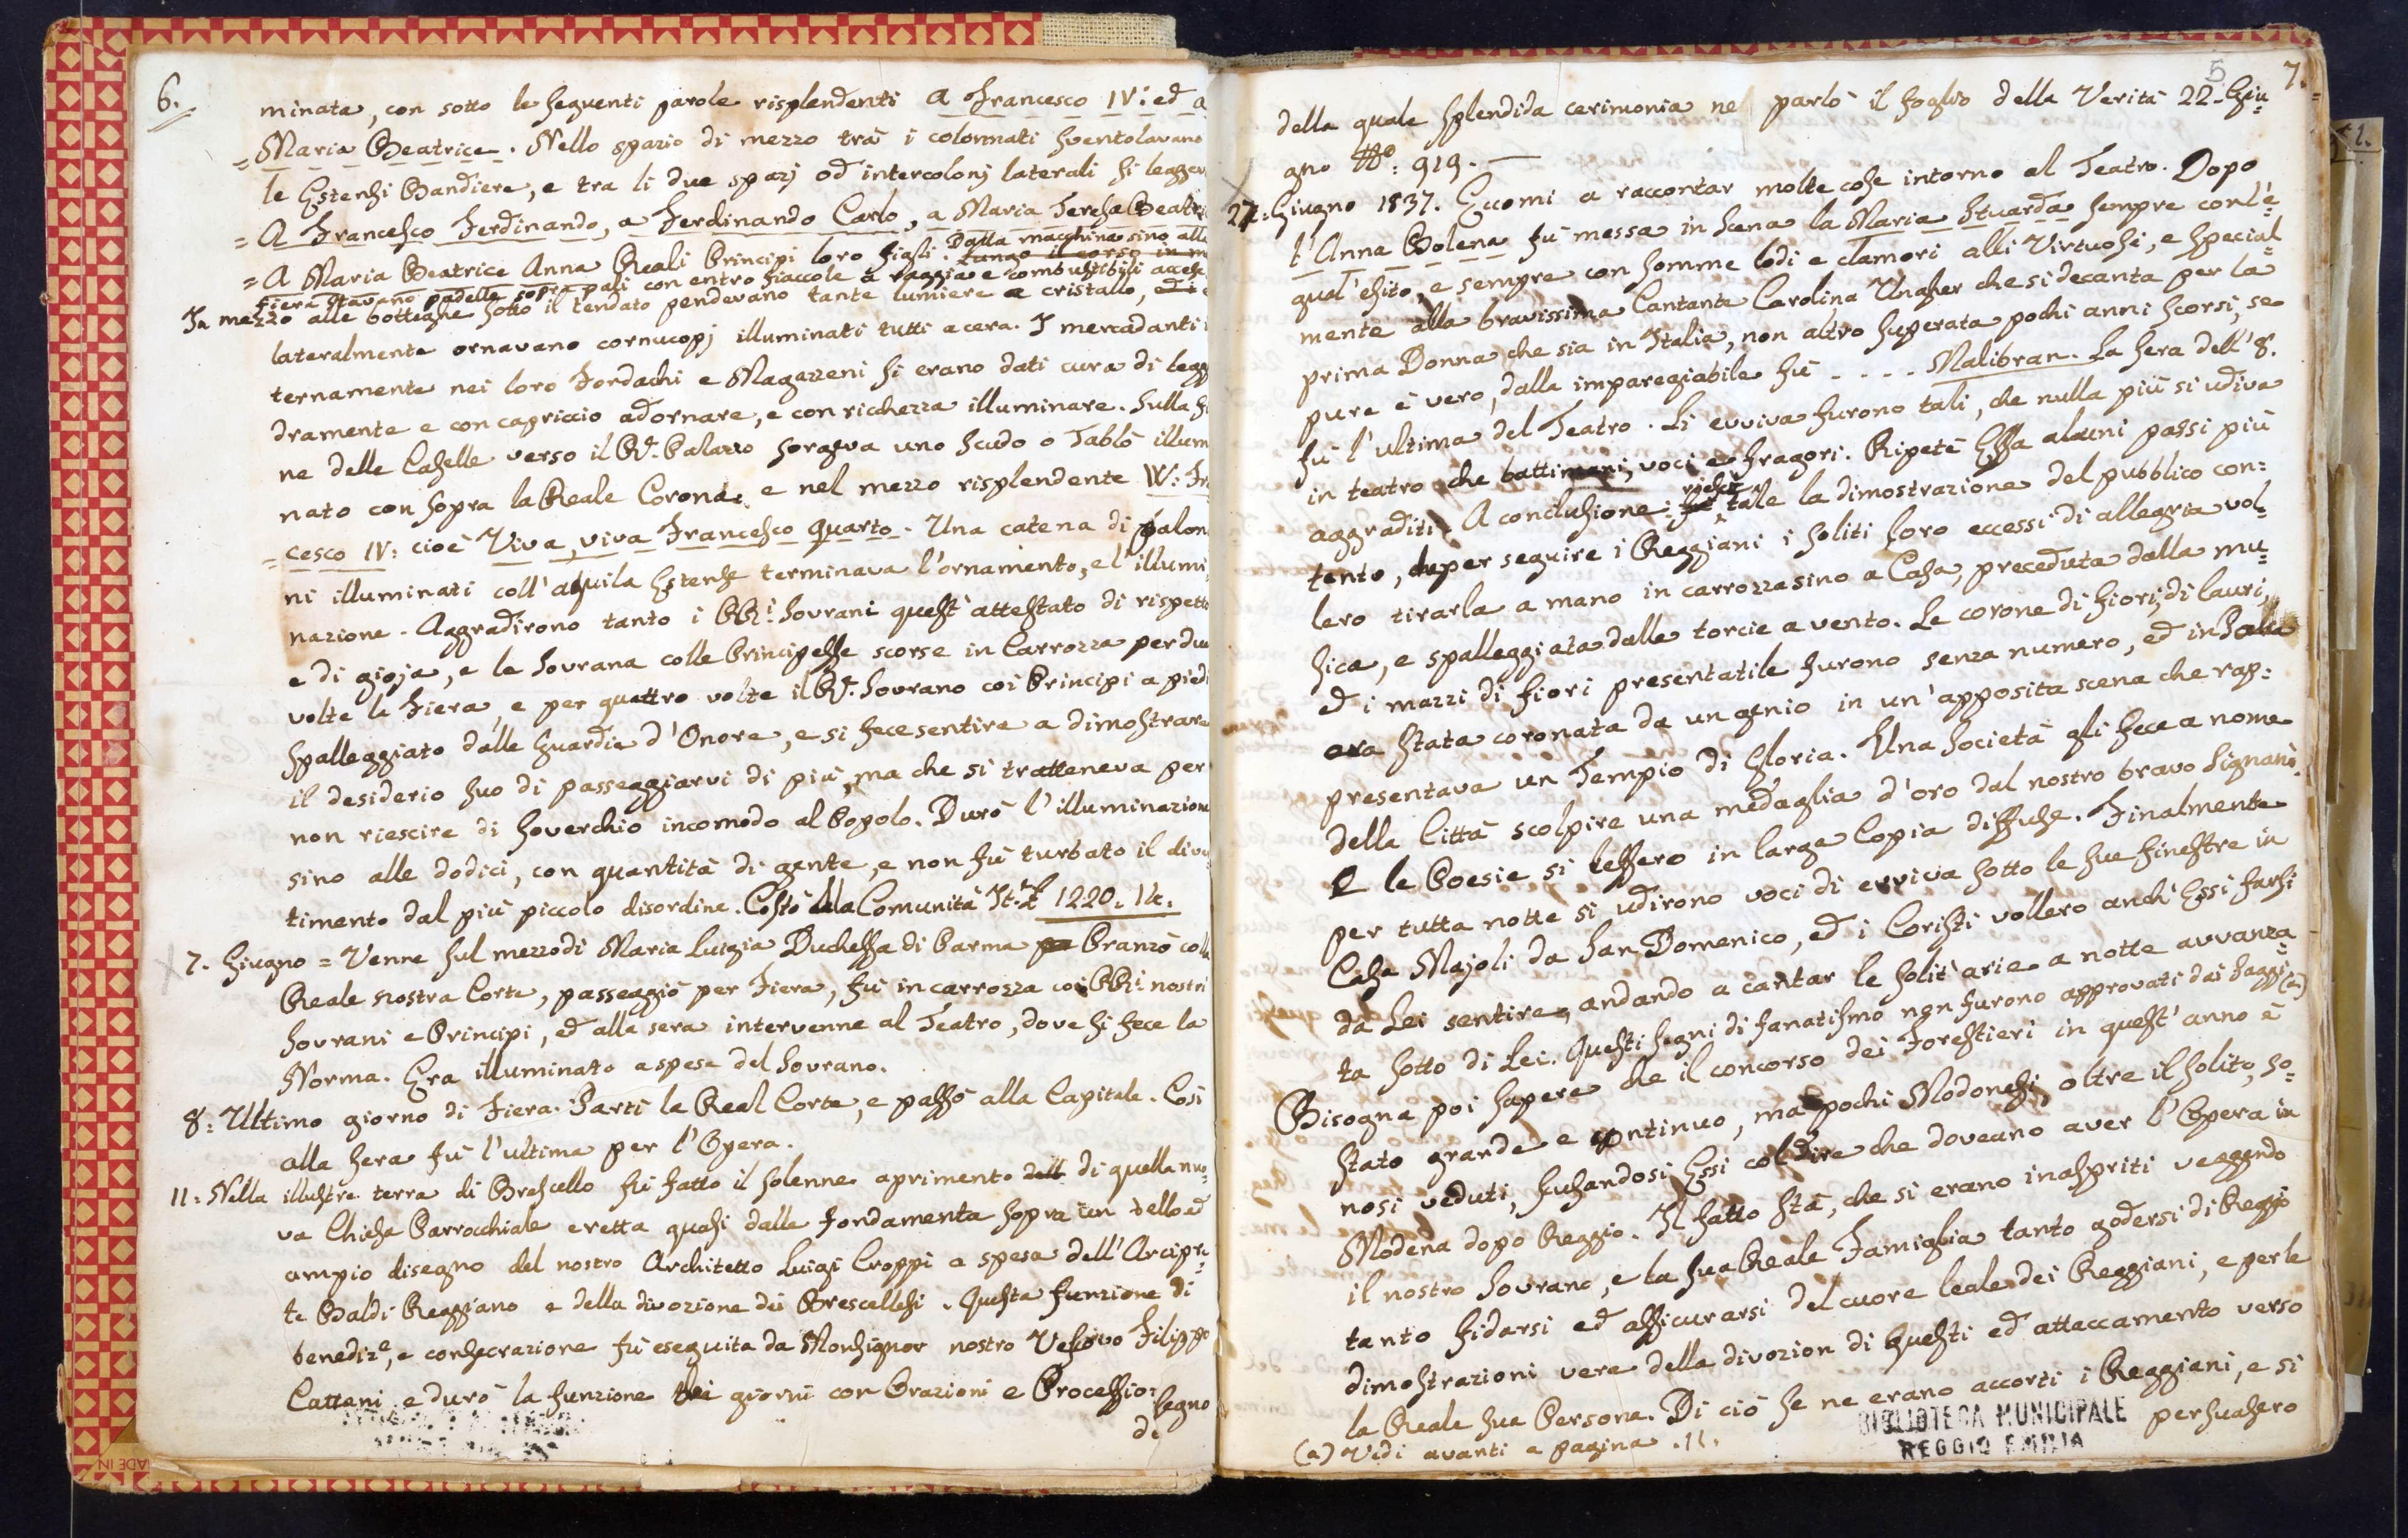 6.
minata, con sotto le seguenti parole risplendenti A Francesco IV: ed a
= Maria Beatrice. Nello spazio di mezzo trà i colonnati sventolavano
le Estensi Bandiere, e tra li due spazj od intercolonj laterali si leggev
= A Francesco Ferdinando, a Ferdinando Carlo, a Maria Teresa Beatri
= A Maria Beatrice Anna Reali Principi loro figli. Dalla macchina sino alla
Lungo il corso in m
fiera stavano padelle sopra pali con entro fiaccole a raggia e combustibili accese
In mezzo alle botteghe sotto il tendato pendevano tante lumiere a cristallo, ed i
lateralmente ornavano cornucopj illuminati tutti a cera. I mercadanti i
ternamente nei loro Fordachi e Magazzeni si erano dati cura di legg
dramente e con capriccio adornare, e con ricchezza illuminare. Sulla fi
ne delle Caselle verso il R. Palazzo sorgeva uno scudo o Tablò illum
nato con sopra la Reale Corona, e nel mezzo risplendente W: Fr
= cesco IV: cioè Viva, viva Francesco quarto. Una catena di palon
ni illuminati coll'aquila Estense terminava l'ornamento, e l'illumi
nazione. Aggradirono tanto i RR: Sovrani quest'attestato di rispetto
e di gioja, e la Sovrana colle Principesse scorse in Carrozza per due
volte la Fiera, e per quattro volte il R. Sovrano coi Principi a piedi
spalleggiato dalle Guardie d'Onore, e si fece sentire a dimostrare
il desiderio suo di passeggiarvi di più, ma che si tratteneva per
non riescire di soverchio incomodo al Popolo. Durò l'illuminazione
sino alle dodici, con quantità di gente, e non fù turbato il diver
timento dal più piccolo disordine. Costò alla Comunità It. 1220. 14.
7. Giugno = Venne sul mezzodì Maria Luigia Duchessa di Parma Pranzò colla
Reale nostra Corte, passeggiò per Fiera, fù in carrozza coi RR: nostri
Sovrani e Principi, ed alla sera intervenne al Teatro, dove si fece la
Norma. Era illuminato a spese del Sovrano.
8: Ultimo giorno di Fiera. Partì la Real Corte, e passò alla Capitale. Così
alla sera fù l'ultima per l'Opera.
11: Nella illustre terra di Brescello fù fatto il solenne aprimento dell di quella nuo=
va Chiesa Parrocchiale eretta quasi dalle fondamenta sopra un bello ed
ampio disegno del nostro Architetto Luigi Croppi a spese dell'Arcipre=
te Baldi Reggiano e della divozione dei Brescellesi. Questa funzione di
benediz.e, e consecrazione fù eseguita da Monsignor nostro Vescovo Filippo
Cattani, e durò la funzione trè giorni con Orazioni e Procession
segno
de
5
7.
della quale splendida cerimonia ne parlò il foglio della Verità 22. Giu=
gno No: 919. —
27: Giugno 1837. Eccomi a raccontar molte cose intorno al Teatro. Dopo
l'Anna Bolena fù messa in scena la Maria Stuarda sempre con l'e=
gual'esito, e sempre con somme lodi e clamori alli Virtuosi, e special=
mente alla bravissima Cantante Carolina Ungher che si decanta per la
prima Donna che sia in Italia, non altro superata pochi anni scorsi, se
pure è vero, dalla imparegiabile fù . . . . Malibran. La sera dell'8.
fù l'ultima del Teatro. Li evviva furono tali, che nulla più si udiva
in teatro che battimani, voci e fragori. Ripetè Essa alcuni passi più
aggraditi. A conclusione: tale la dimostrazione del pubblico con:
tento, per seguire i Reggiani i soliti loro eccessi di allegria vol=
lero tirarla a mano in carrozza sino a Casa, preceduta dalla mu=
sica, e spalleggiata dalle torcie a vento. Le corone di fiori, di lauri,
e i mazzi di fiori presentatile furono senza numero, ed in Palco
era stata coronata da un genio in un'apposita scena che rap:
presentava un Tempio di Gloria. Una società gli fece a nome
della Città scolpire una medaglia d'oro dal nostro bravo Signani.
E le Poesie si lessero in larga Copia diffuse. Finalmente
per tutta notte si udirono voci di evviva sotto le sue finestre in
Casa Majoli da San Domenico, ed i Coristi vollero anch'Essi farsi
da Lei sentire, andando a cantar le solit'arie a notte avvanza=
ta sotto di Lei. Questi segni di fanatismo non furono approvati dai saggi (a)
Bisogna poi sapere che il concorso dei Forestieri in quest'anno è
stato grande e continuo, ma pochi Modonesi, oltre il solito, so=
nosi veduti, scusandosi Essi col dire che doveano aver l'Opera in
Modena dopo Reggio. Il fatto stà, che si erano inaspriti veggendo
il nostro Sovrano, e la sua Reale Famiglia tanto godersi di Reggio
tanto fidarsi ed assicurarsi del cuore leale dei Reggiani, e per le
dimostrazioni vere della divozion di questi ed attaccamento verso
la Reale sua Persona. Di ciò se ne erano accorti i Reggiani, e si
persuasero
(a) Vedi avanti a pagina .11.
BIBLIOTECA MUNICIPALE
REGGIO EMILIA